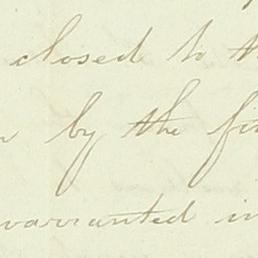 closed to
by the
warranted in